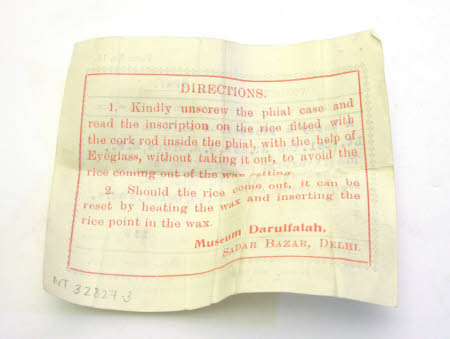 DIRECTIONS.
1. Kindly unscrew the phial case and
read the inscription on the rice fitted with
the cork rod inside the phial, with the help of
Eyeglass, without taking it out, to avoid the
rice coming out of the wax setting.
2. Should the rice come out, it can be
reset by heating the wax and inserting the
rice point in the wax.
Museum Darulfalah,
SADAR BAZAR, DELHI.
NT 32827.3